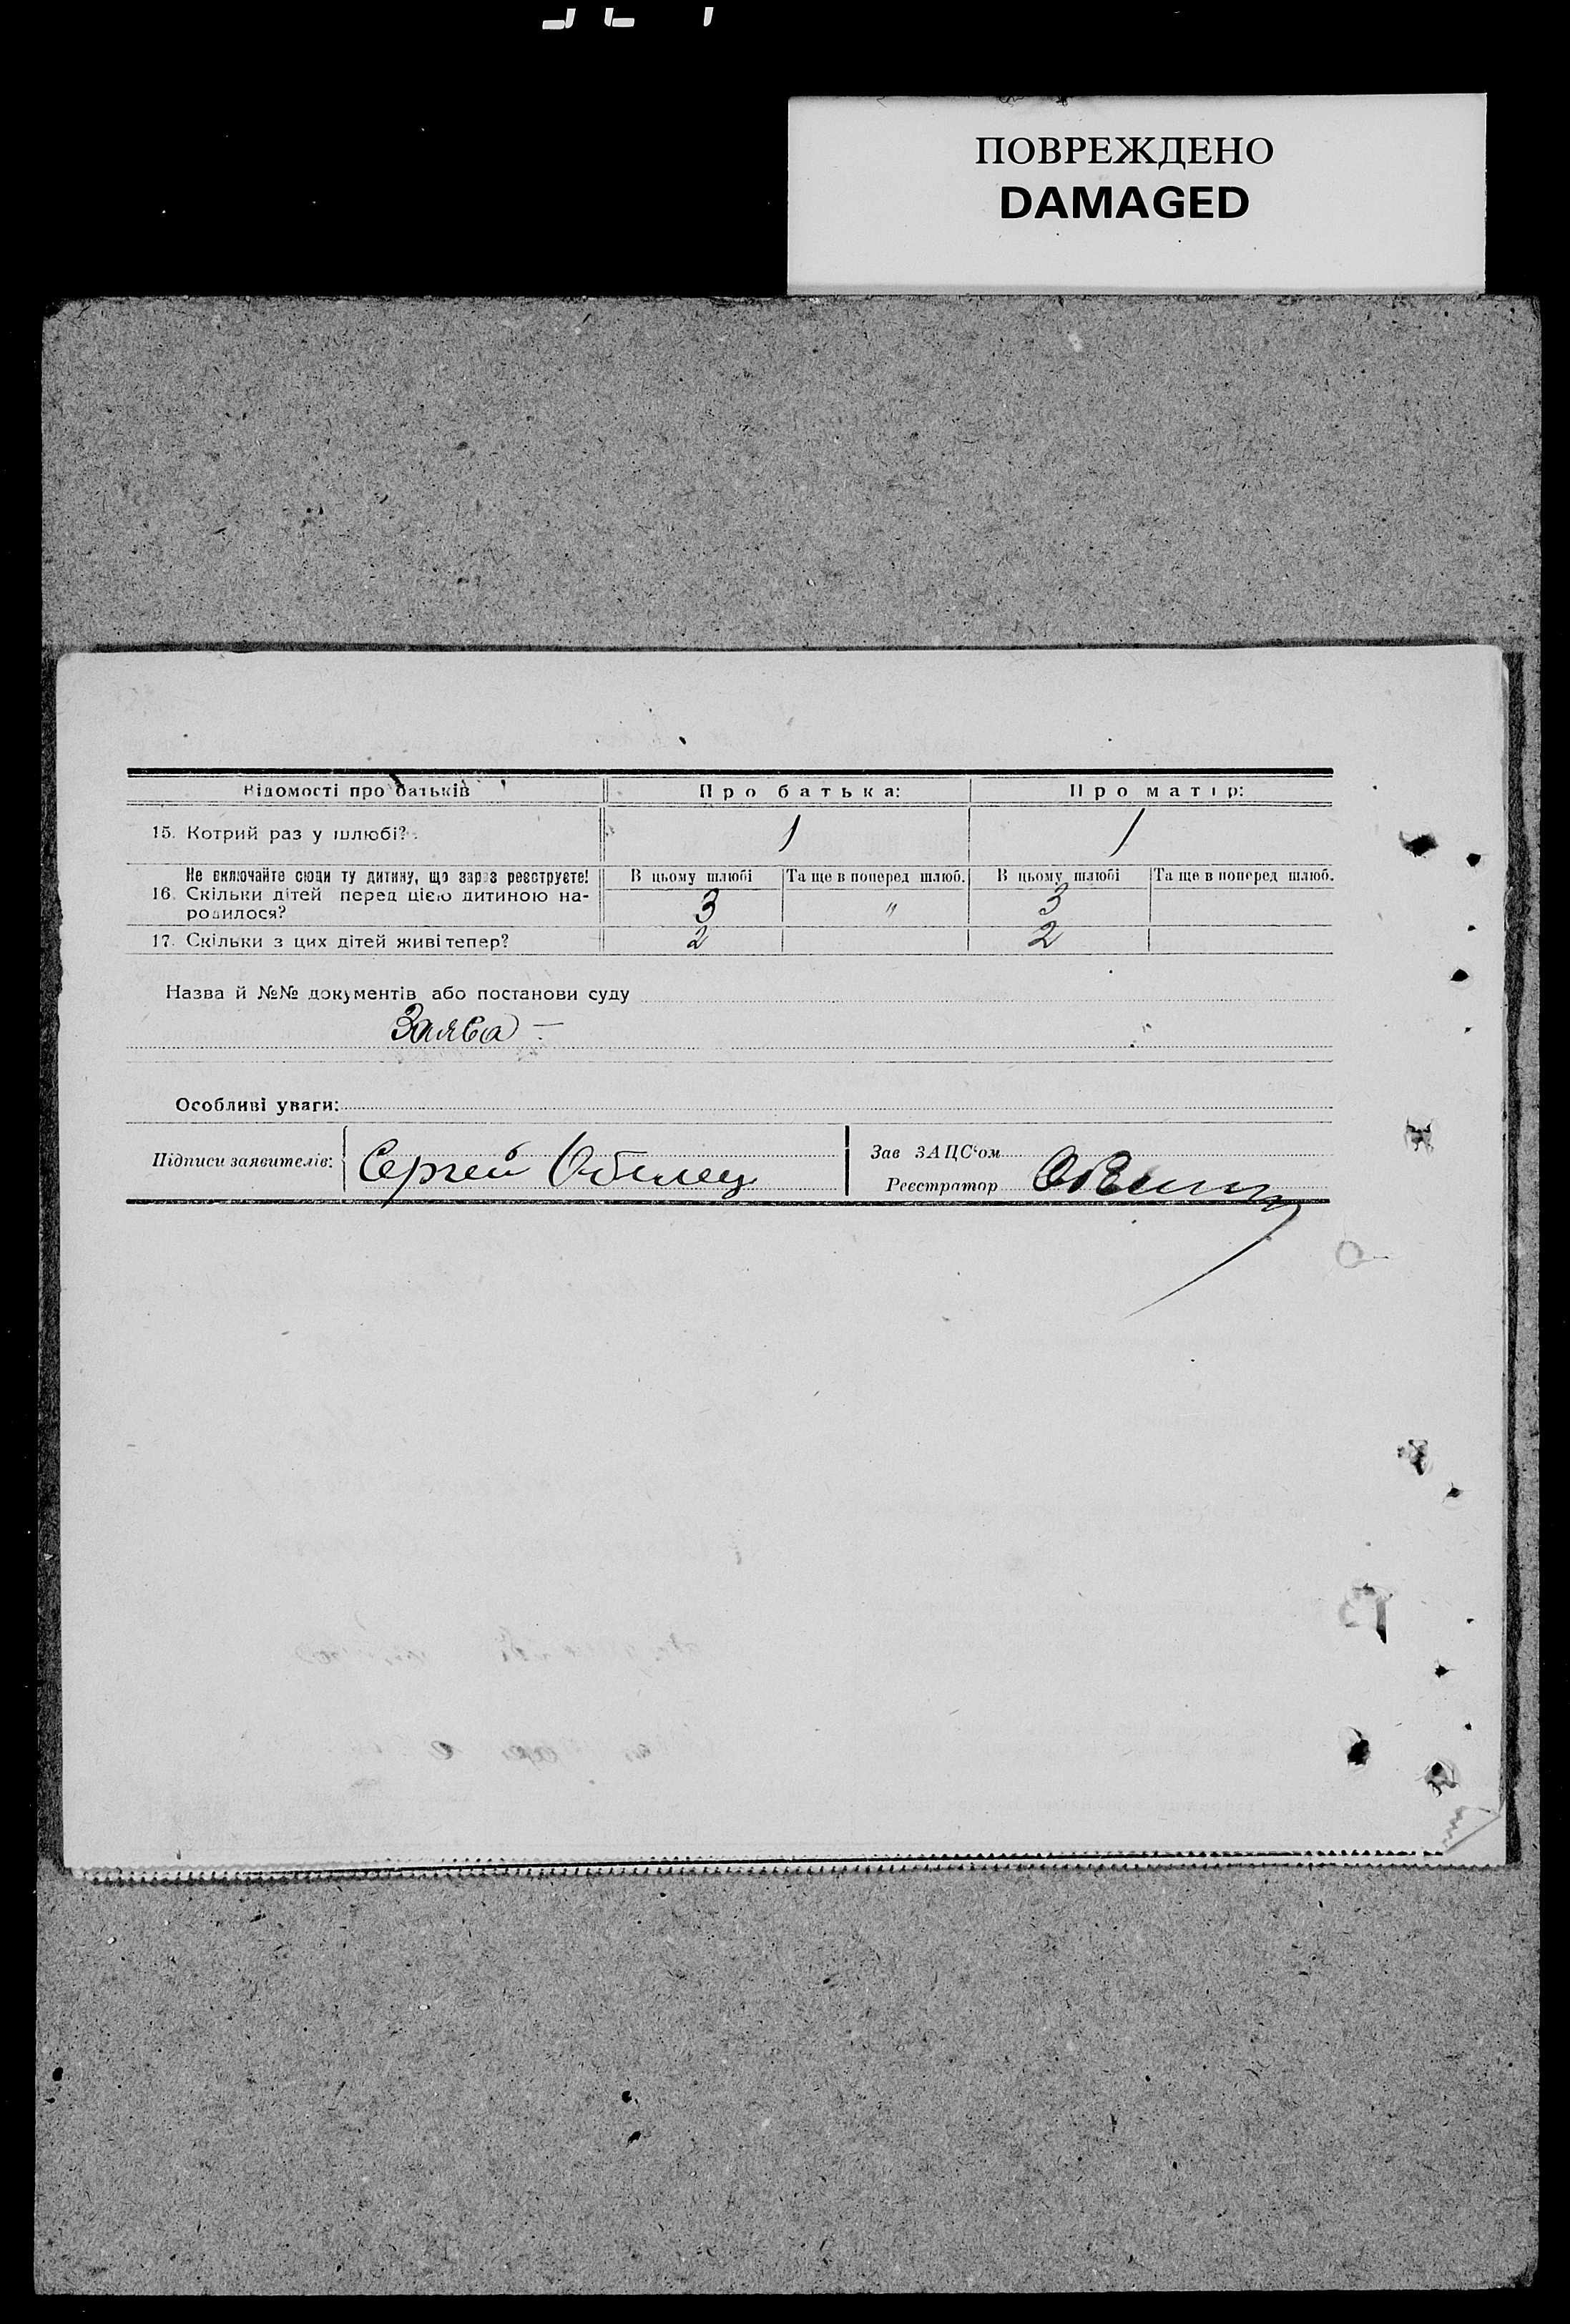 ПОВРЕЖДЕНО
DAMAGED
Відомості про батьків Про батька: Про матір:
15. Котрий раз у шлюбі? 1 1
Не включайте сюди ту дитину, що зараз реєструєте! В цьому шлюбі Та ще в поперед шлюб. В цьому шлюбі Та ще в поперед шлюб.
16. Скільки дітей перед цією дитиною на- 3 " 3
родилося?
17. Скільки з цих дітей живі тепер? 2 2
Назва й №№ документів або постанови суду
Заява –
Особливі уваги:
Підписи заявителів: Сергей Зав ЗАЦС'ом
Реєстратор